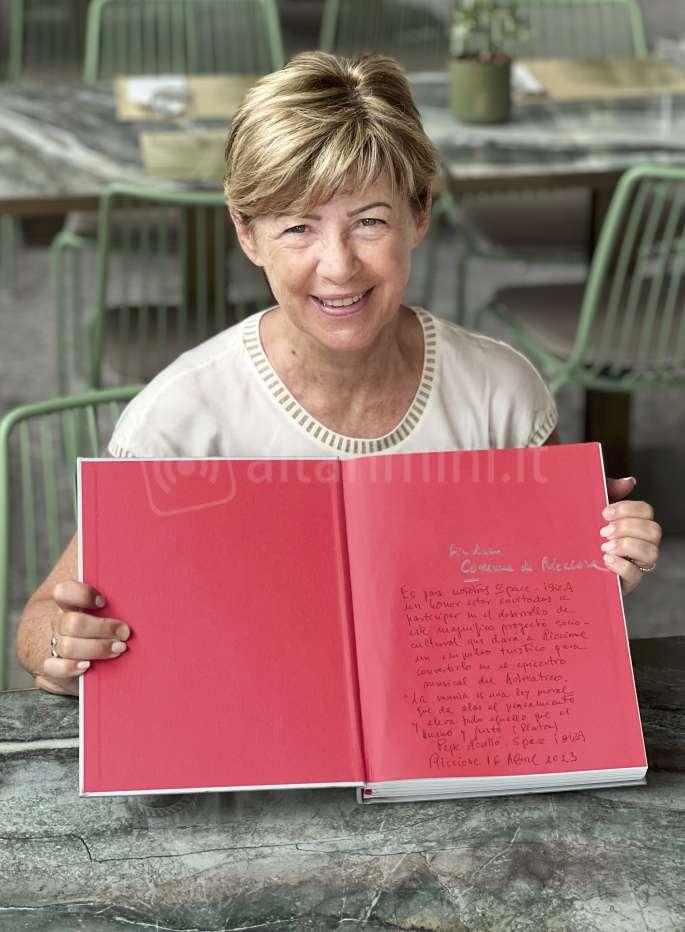 altarimini.it
Comune de Riccione
Es para nosotros Space - ibiza
un honor estar invitados a
participar en el desarrollo de
este magnifico proyecto socio-
cultural que dara a Riccione
un impulso turistico para
convertirlo en el epicentro
musical del Adriatico.
"La musica es una ley moral
que da alas al pensamiento
y eleva todo aquello que es
bueno y justo (Platon)
Pepe Space ibiza
Riccione 16 Abril 2023